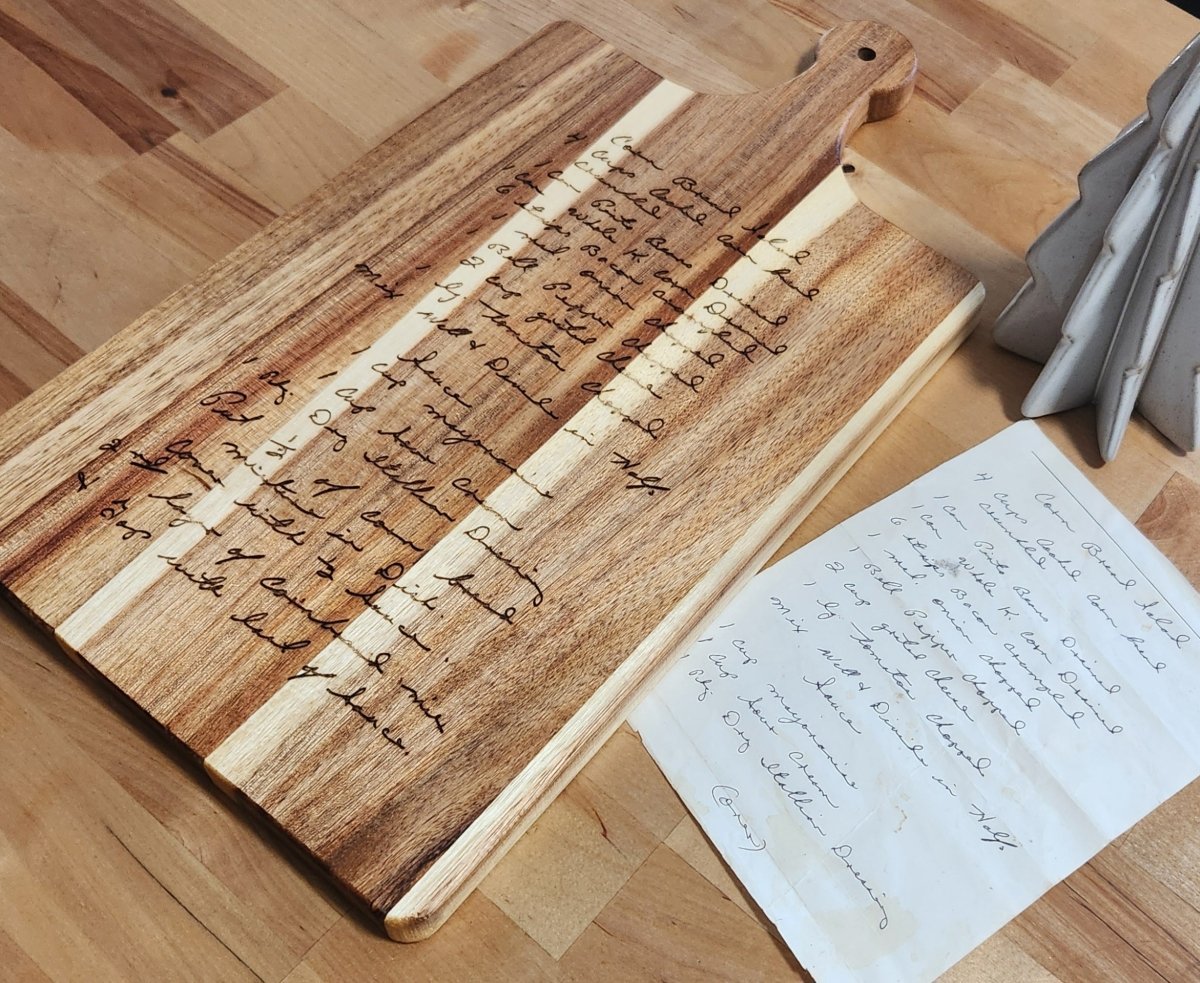 Corn Bread Salad
4 Cups Cooked Corn bread
Crumbled
1 can Pinto Beans Drained
1 can Whole K. corn Drained
6 strips Bacon crumbled
1 med onion chopped
1 Bell Pepper chopped
2 cup grated cheese
1 lg tomatoe chopped
Mix Well & Divide in Half.
Sauce
1 Cup mayonnaise
1 Cup sour cream
1 Pkg Dry Itallian Dressing
Put 1/2 of corn bread
mixture in Dish.
Cover with 1/2 sauce.
2 nd layer of Cornbread mix
& top with last of sauce.
Corn Bread Salad
4 Cups Cooked Corn bread
Crumbled
1 can Pinto Beans Drained
1 can Whole K. corn Drained
6 strips Bacon crumbled
1 med onion chopped
1 Bell Pepper chopped
2 cup grated cheese
1 lg tomatoe chopped
Mix Well & Divide in Half.
Sauce
1 Cup mayonnaise
1 Cup sour cream
1 Pkg Dry Itallian Dressing
(over)